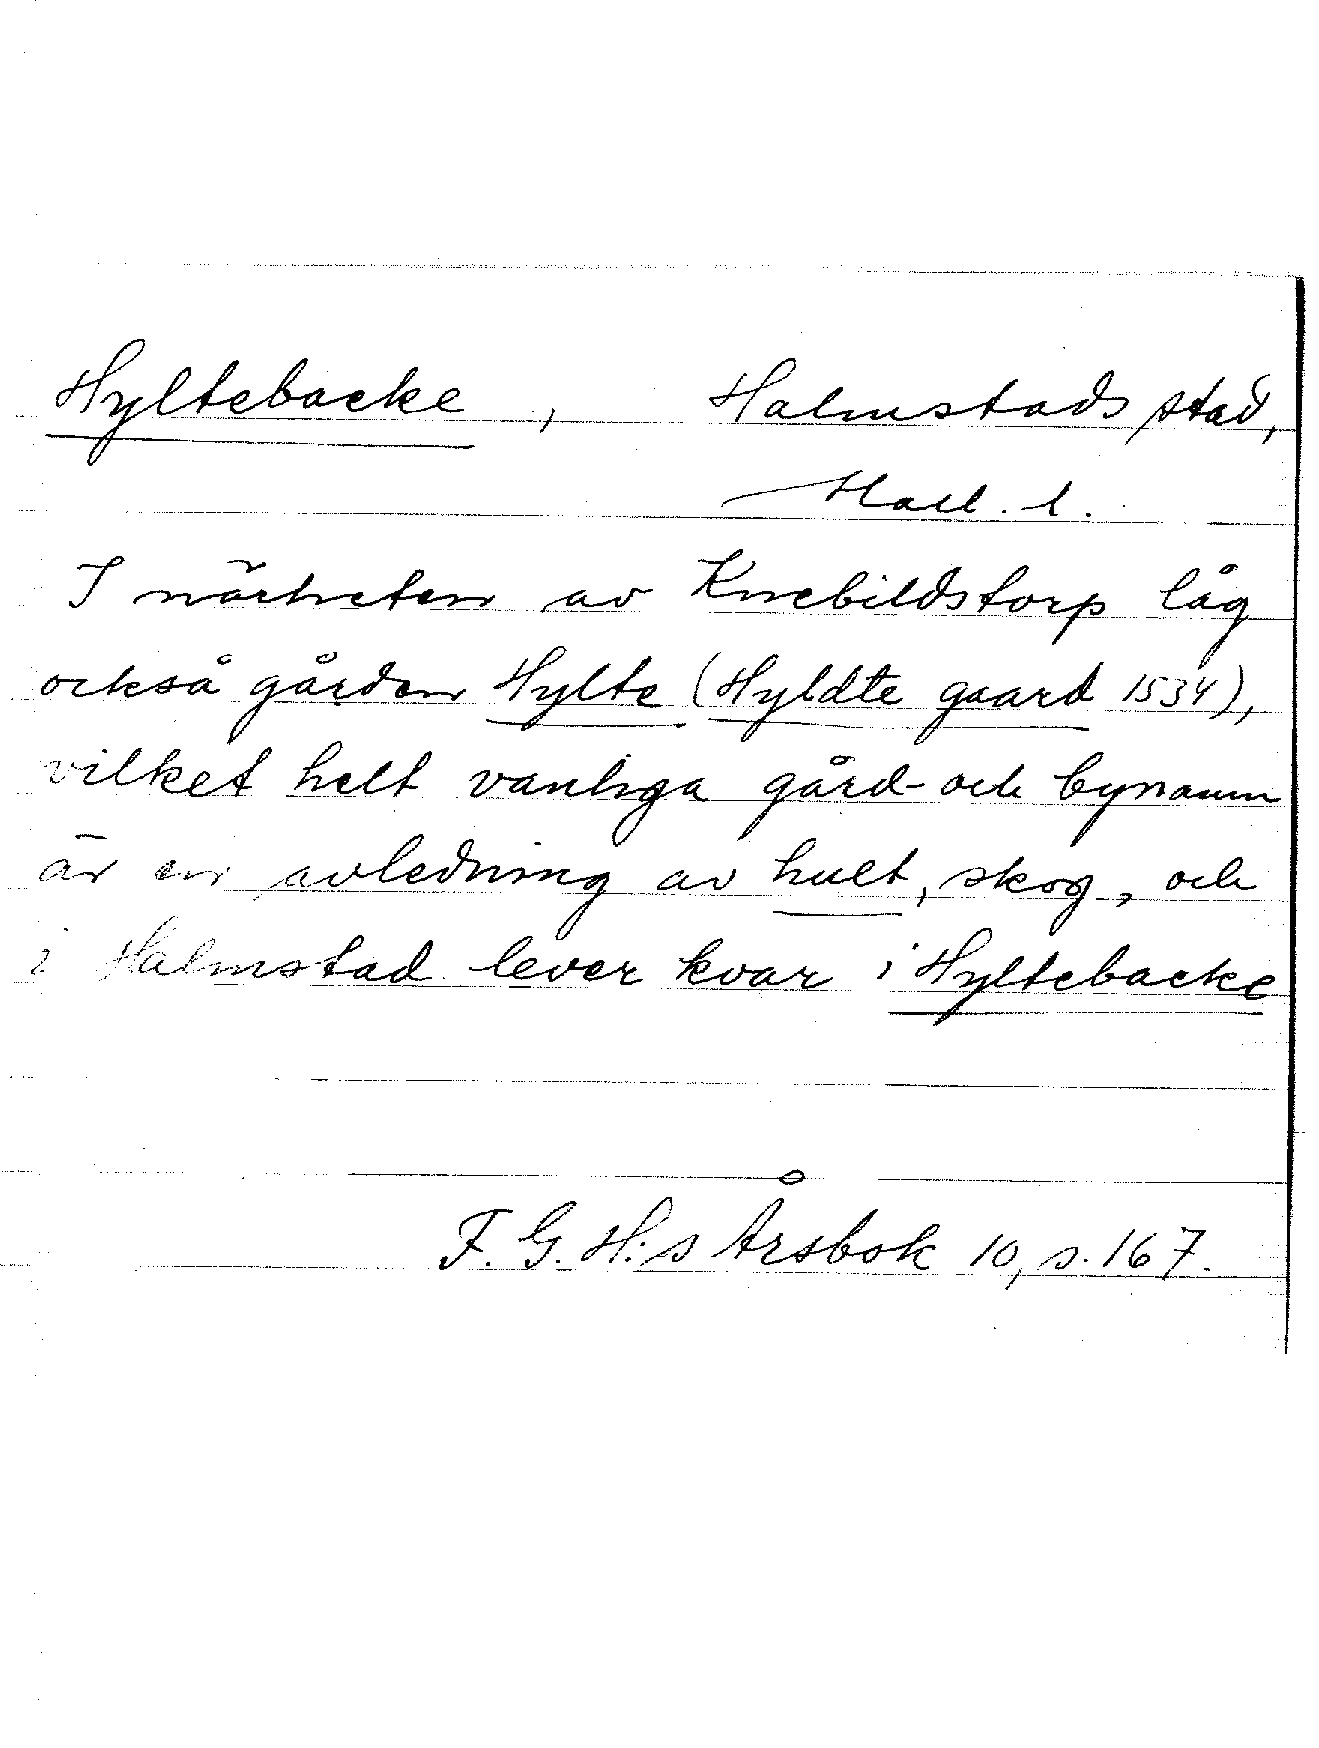 Hyltebacke, Halmstads stad,
Hall. l.
I närheten av Knebildstorp låg
också gården Hylte (Hyldte gaard 1534),
vilket helt vanliga gård- och bynamn
är en avledning av hult, skog, och
i Halmstad lever kvar i Hyltebacke
F. G. H:s Årsbok 10, s. 167.